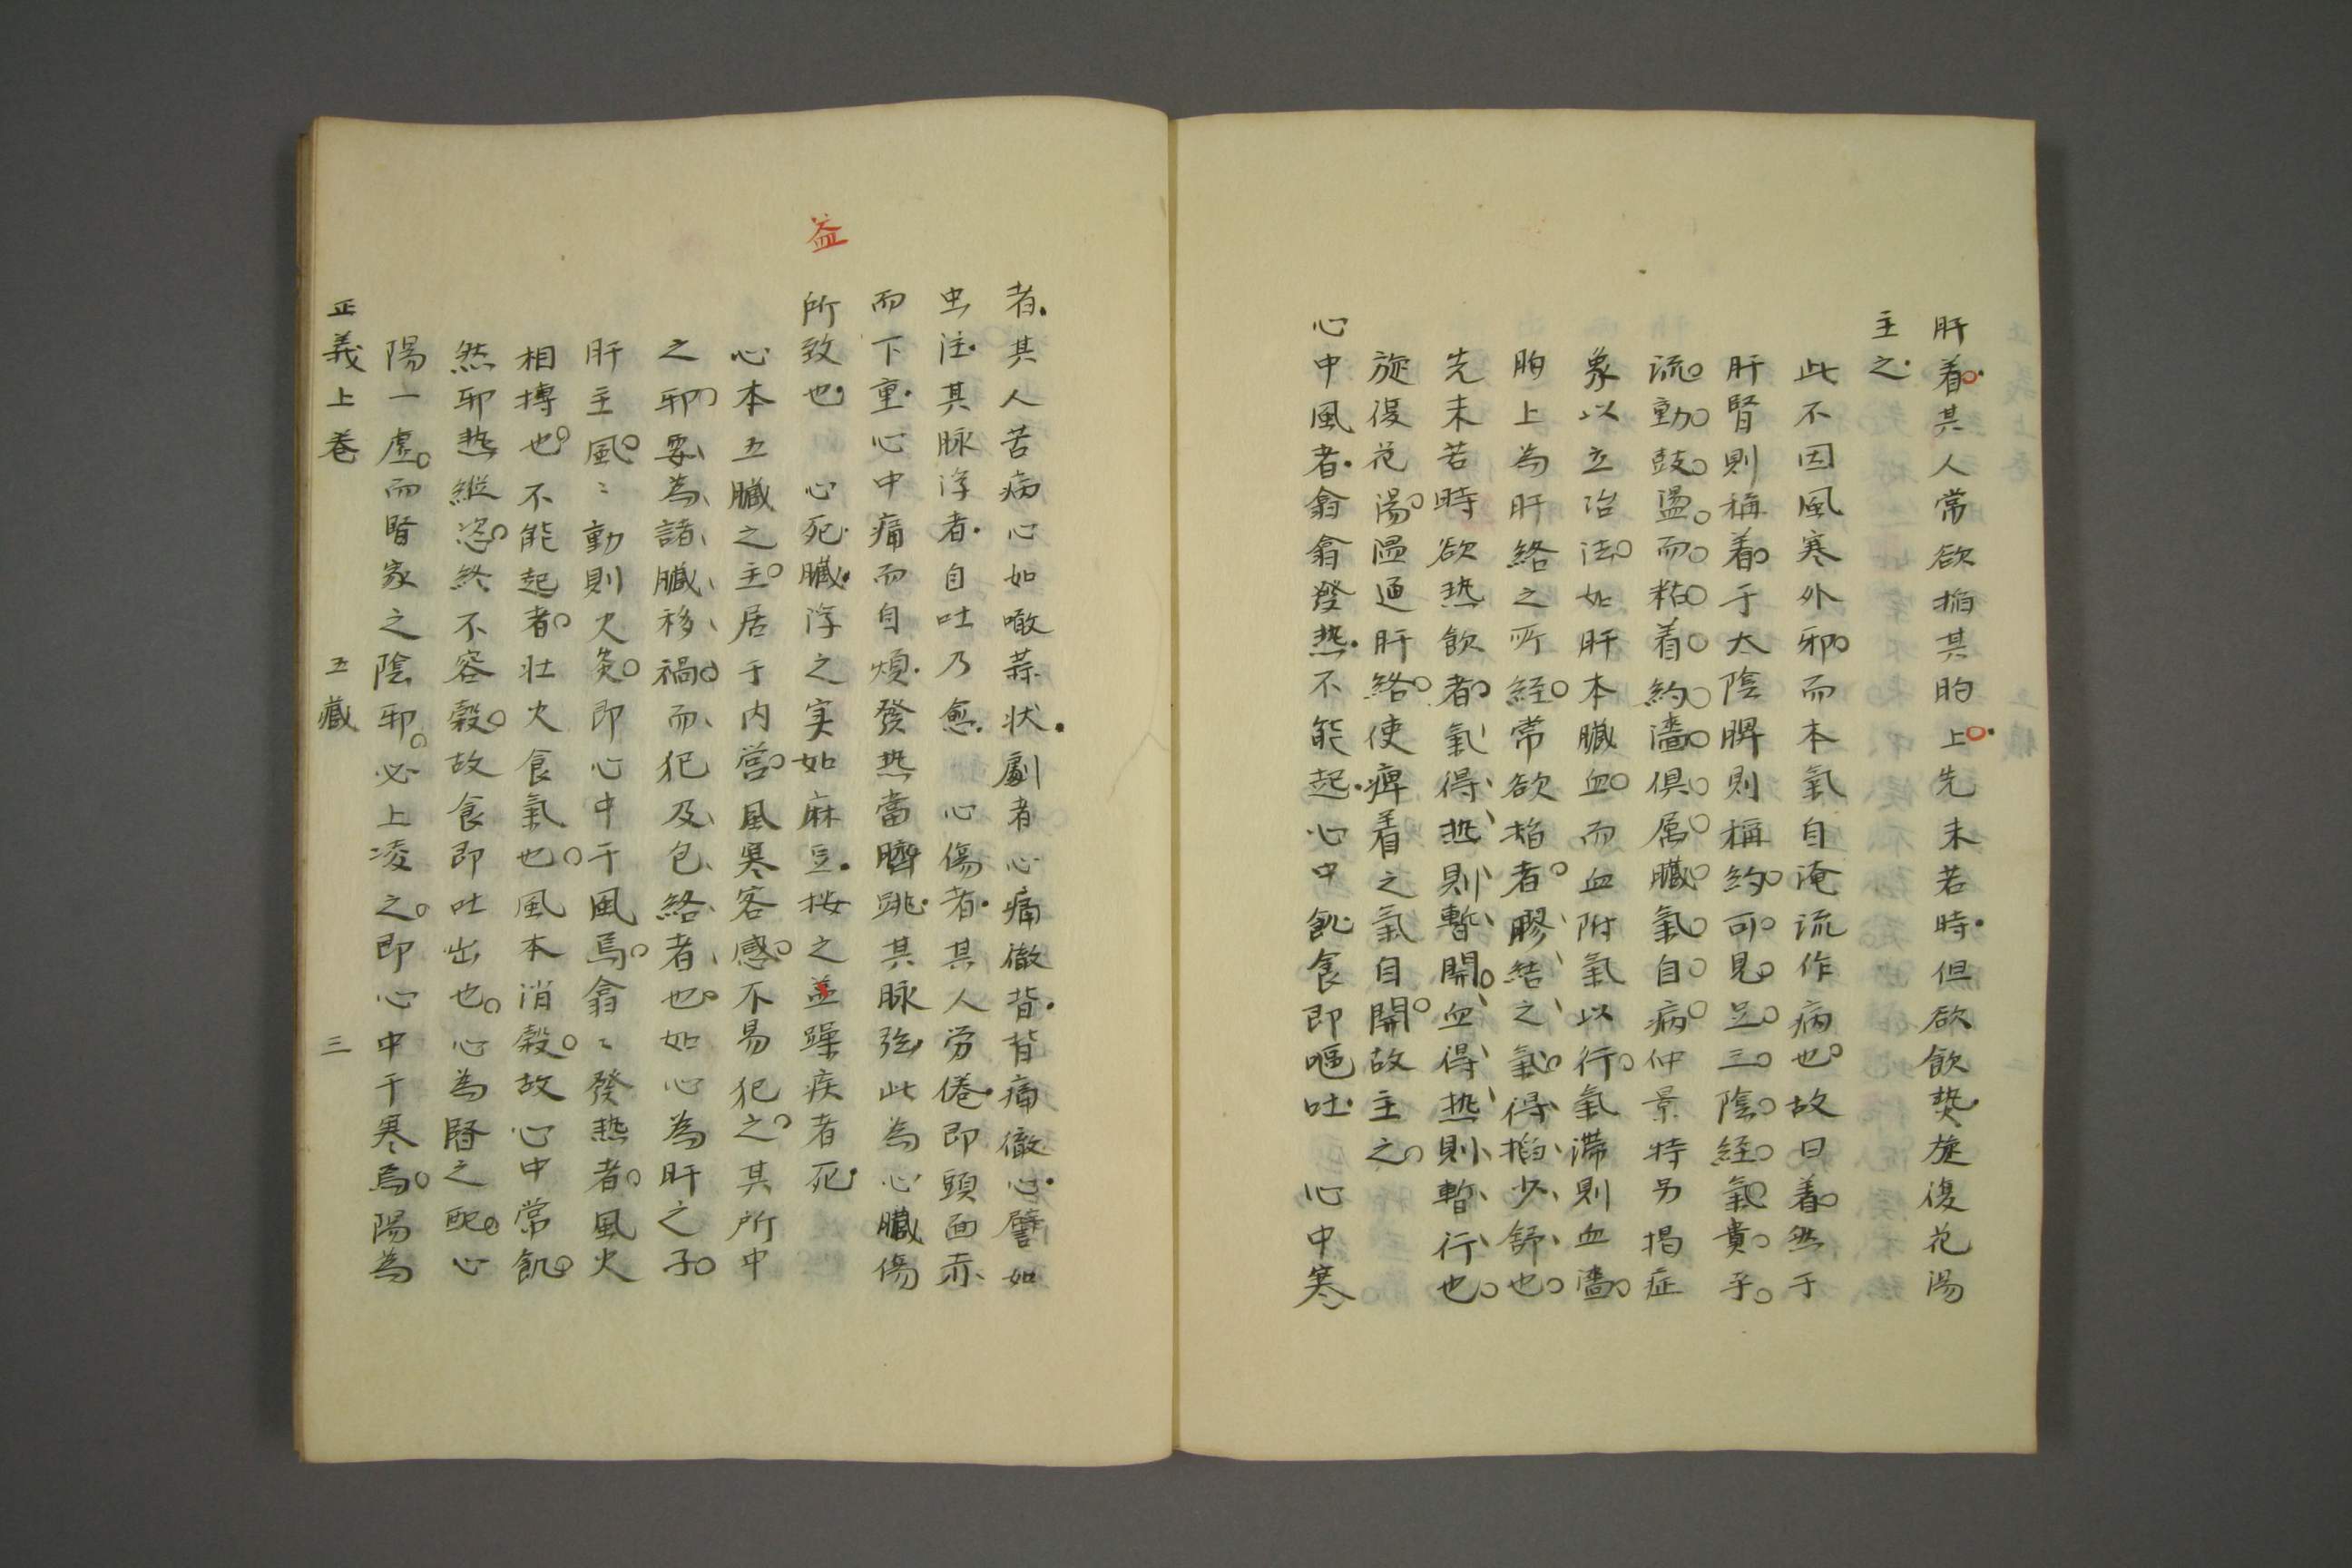 肝着其人常欲掐其胸上先未苦時但欲飲熱旋復花湯
主之
此不因風寒外邪而本氣自淹流作病也故曰着然于
肝腎則稱着于太陰脾則稱約可見足三陰經氣貴乎
流動鼓盪而粘着約濇俱属臟氣自病仲景特另揭症
象以立治法如肝本臟血而血附氣以行氣滯則血濇
胸上為肝絡之所經常欲掐者膠結之氣得掐少舒也
先未苦時欲熱飲者氣得熱則暫開血得熱則暫行也
旋復花湯溫通肝絡使痺着之氣自開故主之
心中風者翕翕發熱不能起心中飢食即嘔吐 心中寒
者其人苦病心如噉蒜状劇者心痛徹背背痛徹心譬如
虫注其脉浮者自吐乃愈 心傷者其人労倦即頭面赤
而下重心中痛而自煩發熱當臍跳其脉弦此為心臟傷
益
所致也 心死臟浮之実如麻豆按之益躁疾者死
心本五臟之主居于内营風寒客感不易犯之其所中
之邪要為諸臟移禍而犯及包絡者也如心為肝之子
肝主風〻動則火炎即心中于風焉翕〻發熱者風火
相摶也不能起者壮火食氣也風本消穀故心中常飢
然邪熱縱恣終不容穀故食即吐出也心為腎之配心
陽一虛而腎家之陰邪必上凌之即心中于寒焉陽為
正義上卷 五藏 三